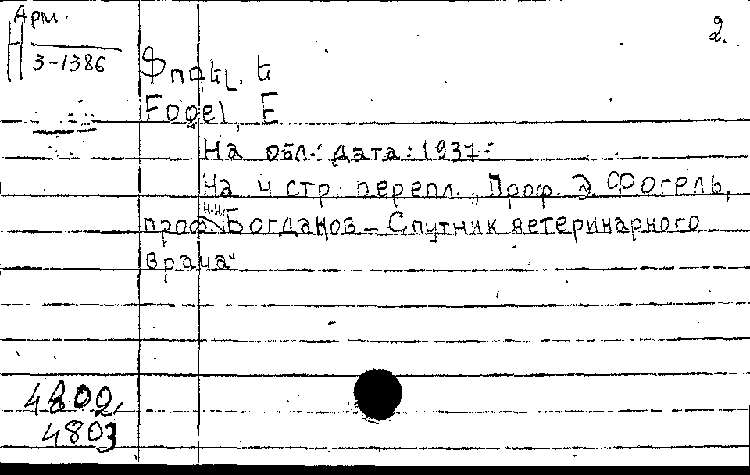 Арм.
3-1386
2.
Ֆոգել. Ե
Fogel, E
На обл.: дата: 1937.
На 4 стр. перепл.: "Проф. Э. Фогель,
проф. Н.Н. Богданов - Спутник ветеринарного
врача"
4802,
4803